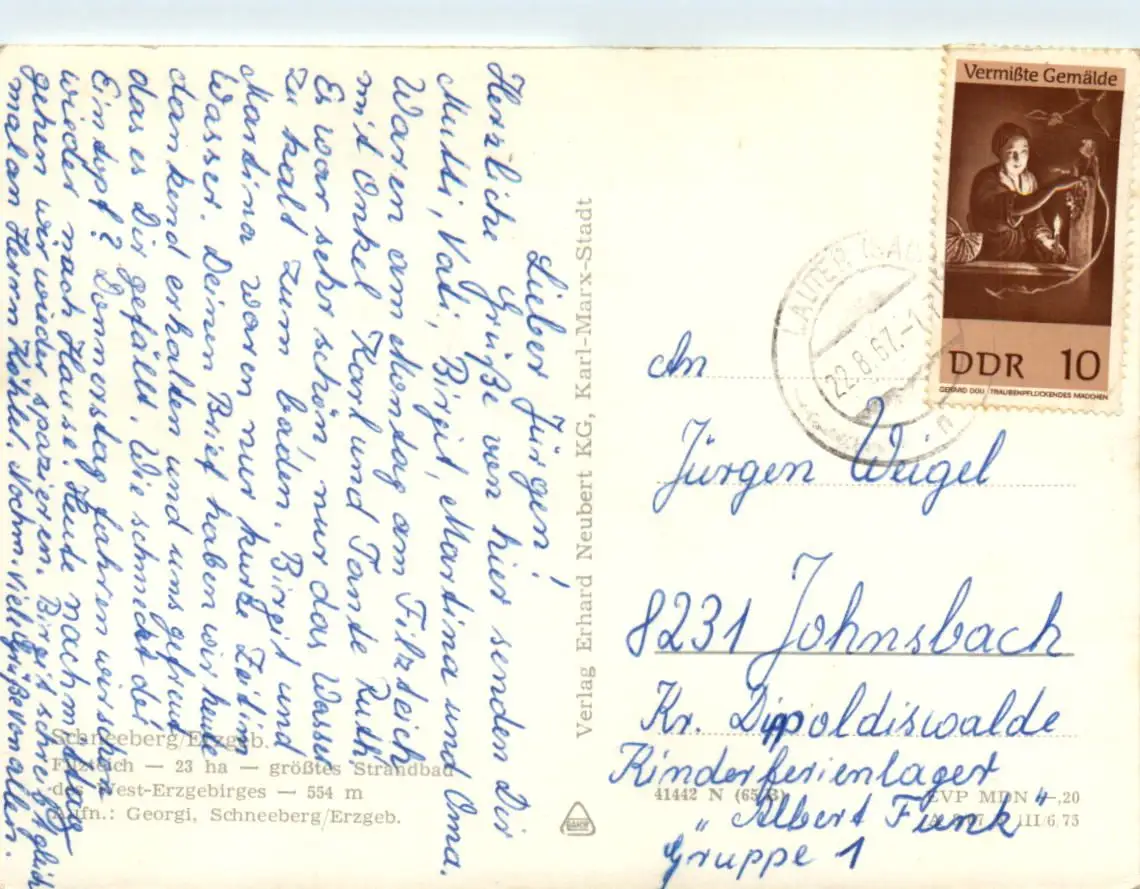 Lieber Jürgen!
Herzliche Grüße von hier senden Dir
Mutti, Vati, Birgit, Martina und Oma.
Waren am Montag am Filzteich
mit Onkel Karl und Tante Ruth
Es war sehr schön, nur das Wasser
zu kalt zum baden. Birgit und
Martina waren nur kurze Zeit im
Wasser. Deinen Brief haben wir heute
dankend erhalten und uns gefreut
das es Dir gefällt. Wie schmeckt der
Eintopf? Donnerstag fahren wir schon
wieder nach Hause. Heute nachmittag
gehen wir wieder spazieren. Birgit schreibt gleich
mal an Herrn Köhler. Nochm. viele Grüße von allen.
Schneeberg/Erzgeb.
Filzteich — 23 ha — größtes Strandbad
des West-Erzgebirges — 554 m
Aufn.: Georgi, Schneeberg/Erzgeb.
Verlag Erhard Neubert KG, Karl-Marx-Stadt
Vermißte Gemälde
DDR 10
GERARD DOU · TRAUBENPFLÜCKENDES MÄDCHEN
LAUTER
22.8.67.-1
n
An
Jürgen Weigel
8231 Johnsbach
Kr. Dippoldiswalde
Kinderferienlager
"Albert Funk"
Gruppe 1
41442 N
EVP MDN —,20
III/6/75